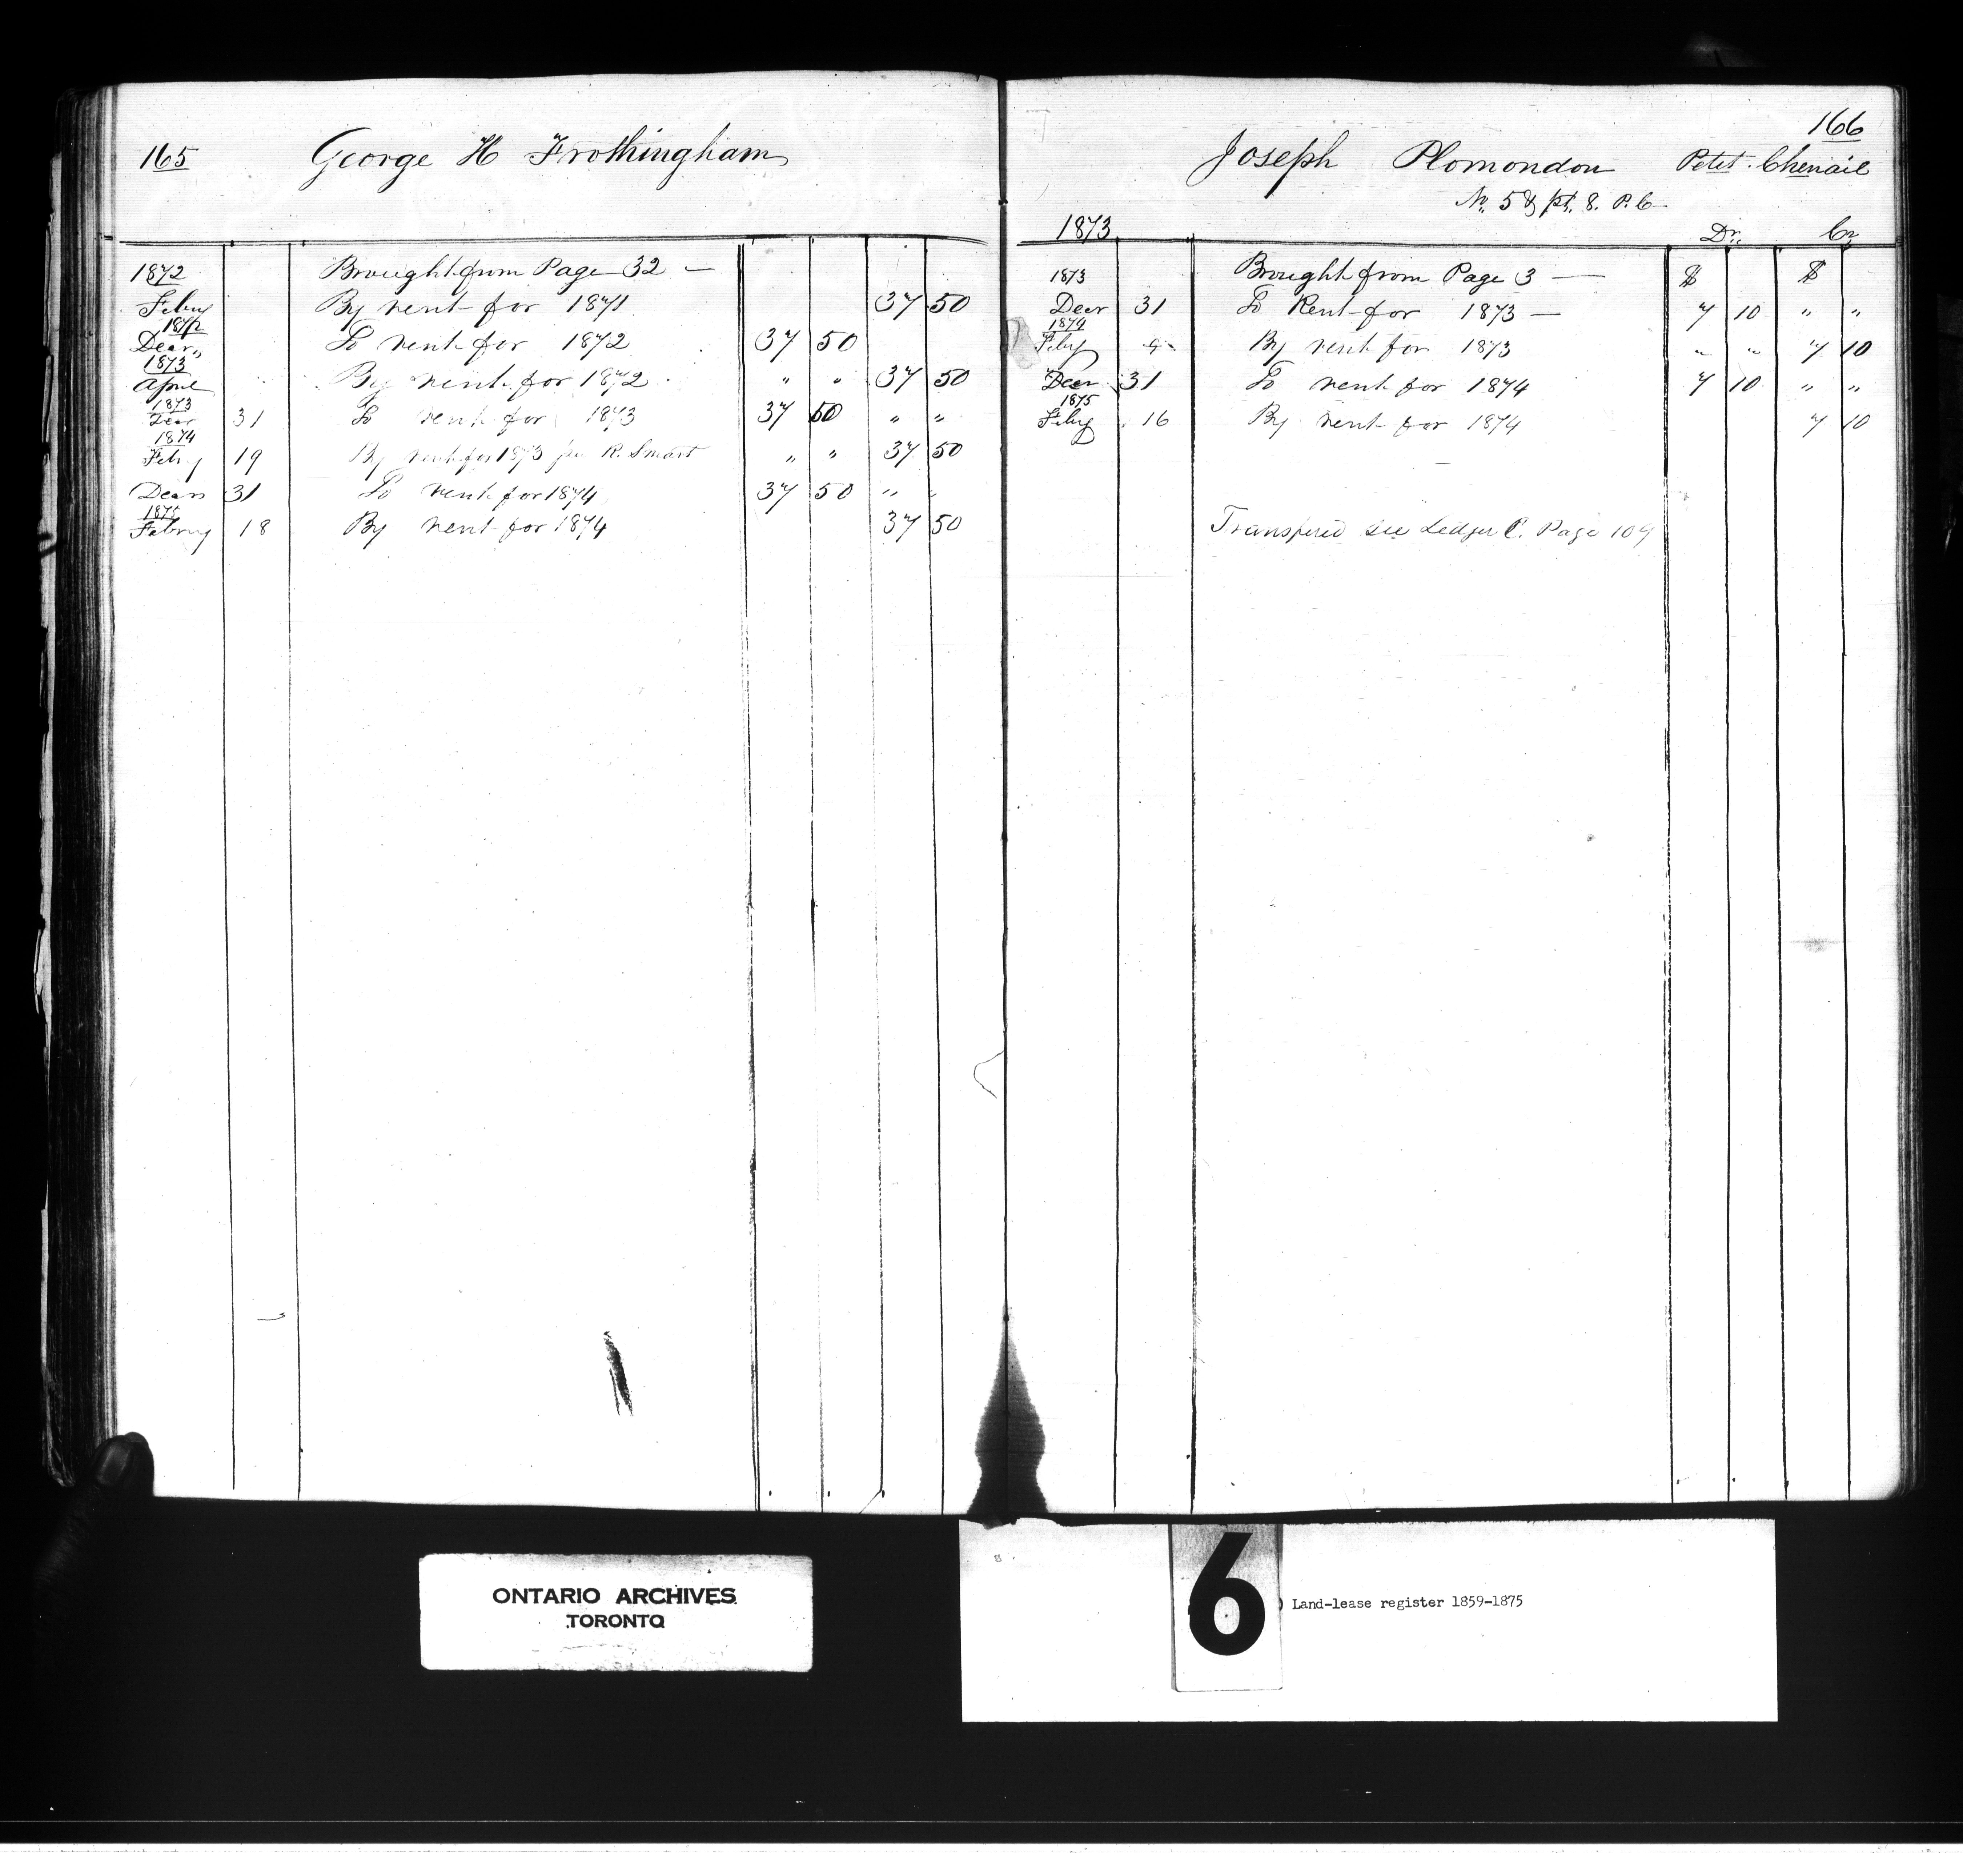 165 George H Frothingham
1872 Brought from Page 32 —
Feby By rent for 1871 37 50
1872
Decr To rent for 1872 37 50
1873
April By rent for 1872 " " 37 50
1873
Decr 31 To rent for 1873 37 50 " "
1874
Feby 19 By rent for 1873 per R. Smart " " 37 50
Decr 31 To rent for 1874 37 50 " "
1875
Febry 18 By rent for 1874 37 50
166
Joseph Plomondon Petit Chenail
No 5 & pt. 8. P. C.
1873 Dr. Cr
1873 Brought from Page 3 — $ $
Decr 31 To Rent for 1873 — 7 10 " "
1874
Feby 9 By rent for 1873 " " 7 10
Decr 31 To rent for 1874 7 10 " "
1875
Feby 16 By rent for 1874 7 10
Transfered see Ledger C. Page 109
ONTARIO ARCHIVES
TORONTO
6
Land-lease register 1859-1875